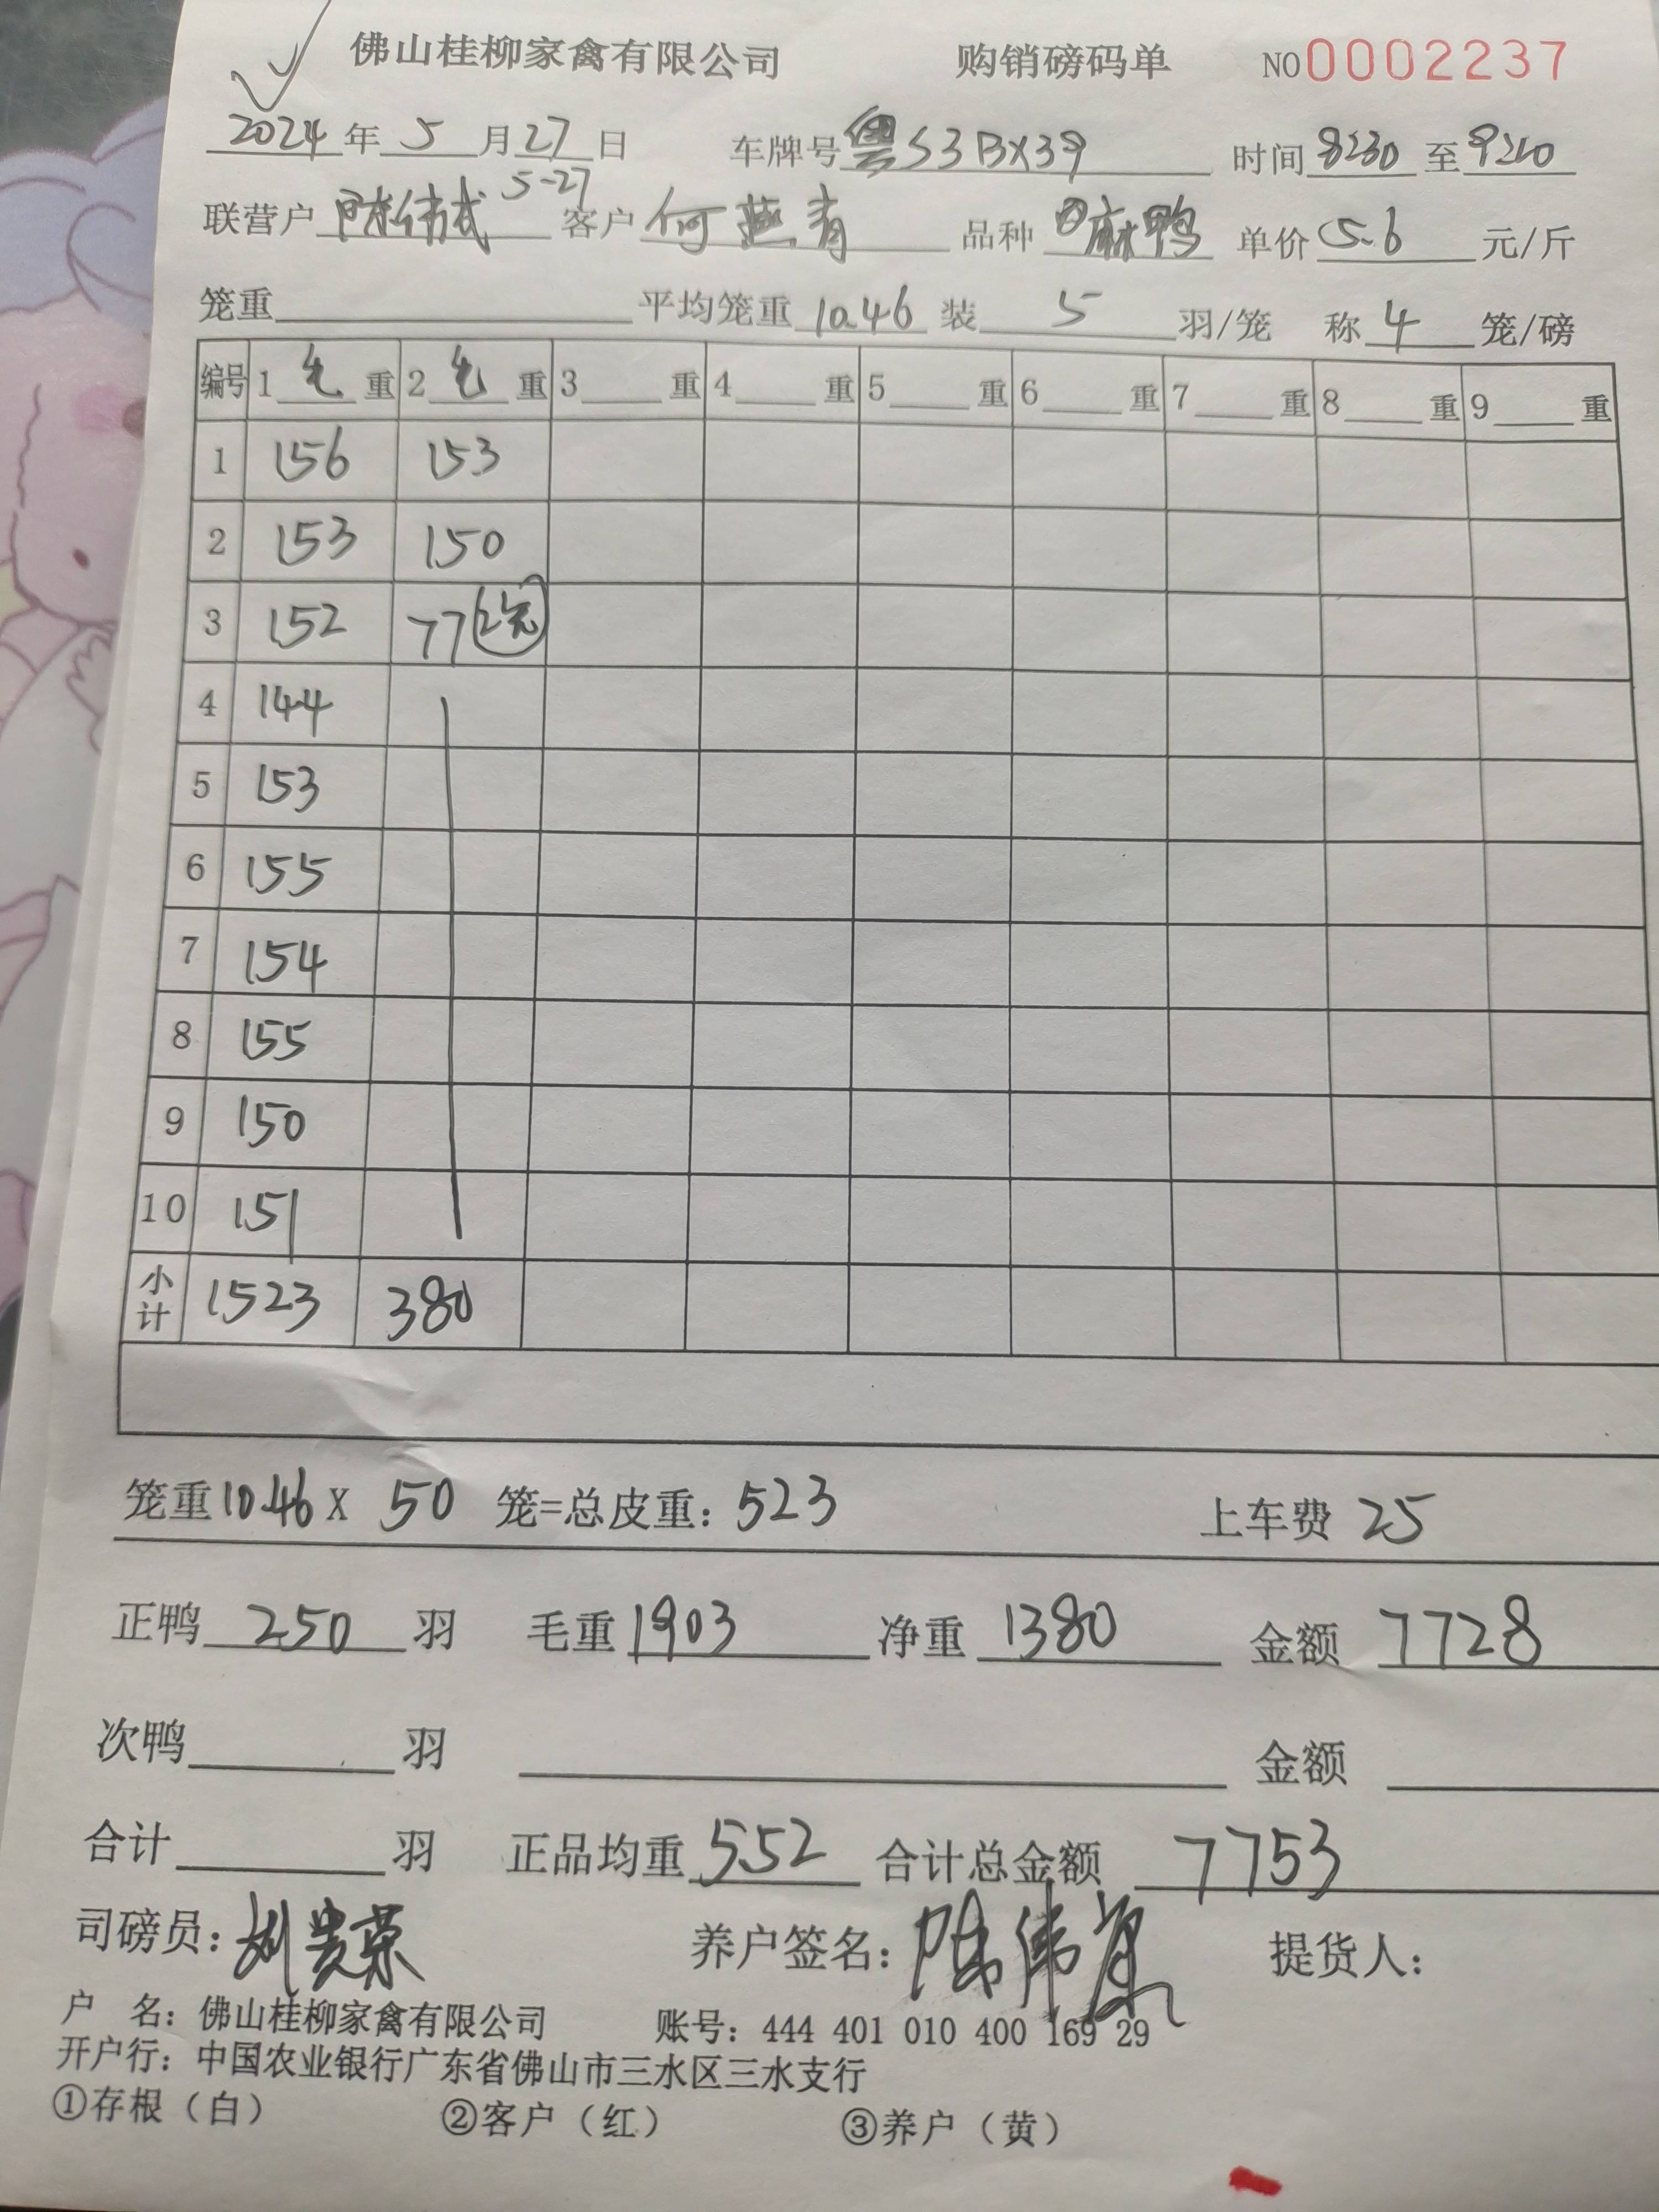 佛山桂柳家禽有限公司 购销磅码单 NO0002237
2024年5月27日 车牌号粤S3BX39 时间8:30至9:20
联营户 陈伟斌 5-27 客户 何燕青 品种 麻鸭 单价 5.6 元/斤
笼重 平均笼重 10.46 装 5 羽/笼 称 4 笼/磅
编号 1 毛 重 2 毛 重 3 重 4 重 5 重 6 重 7 重 8 重 9 重
1 156 153
2 153 150
3 152 77
4 144
5 153
6 155
7 154
8 155
9 150
10 151
小计 1523 380
笼重10.46X 50 笼=总皮重: 523 上车费 25
正鸭 250 羽 毛重 1903 净重 1380 金额 7728
次鸭 羽 金额
合计 羽 正品均重 5.52 合计总金额 7753
司磅员: 养户签名: 提货人:
户 名: 佛山桂柳家禽有限公司 账号: 444 401 010 400 169 29
开户行: 中国农业银行广东省佛山市三水区三水支行
①存根（白） ②客户（红） ③养户（黄）